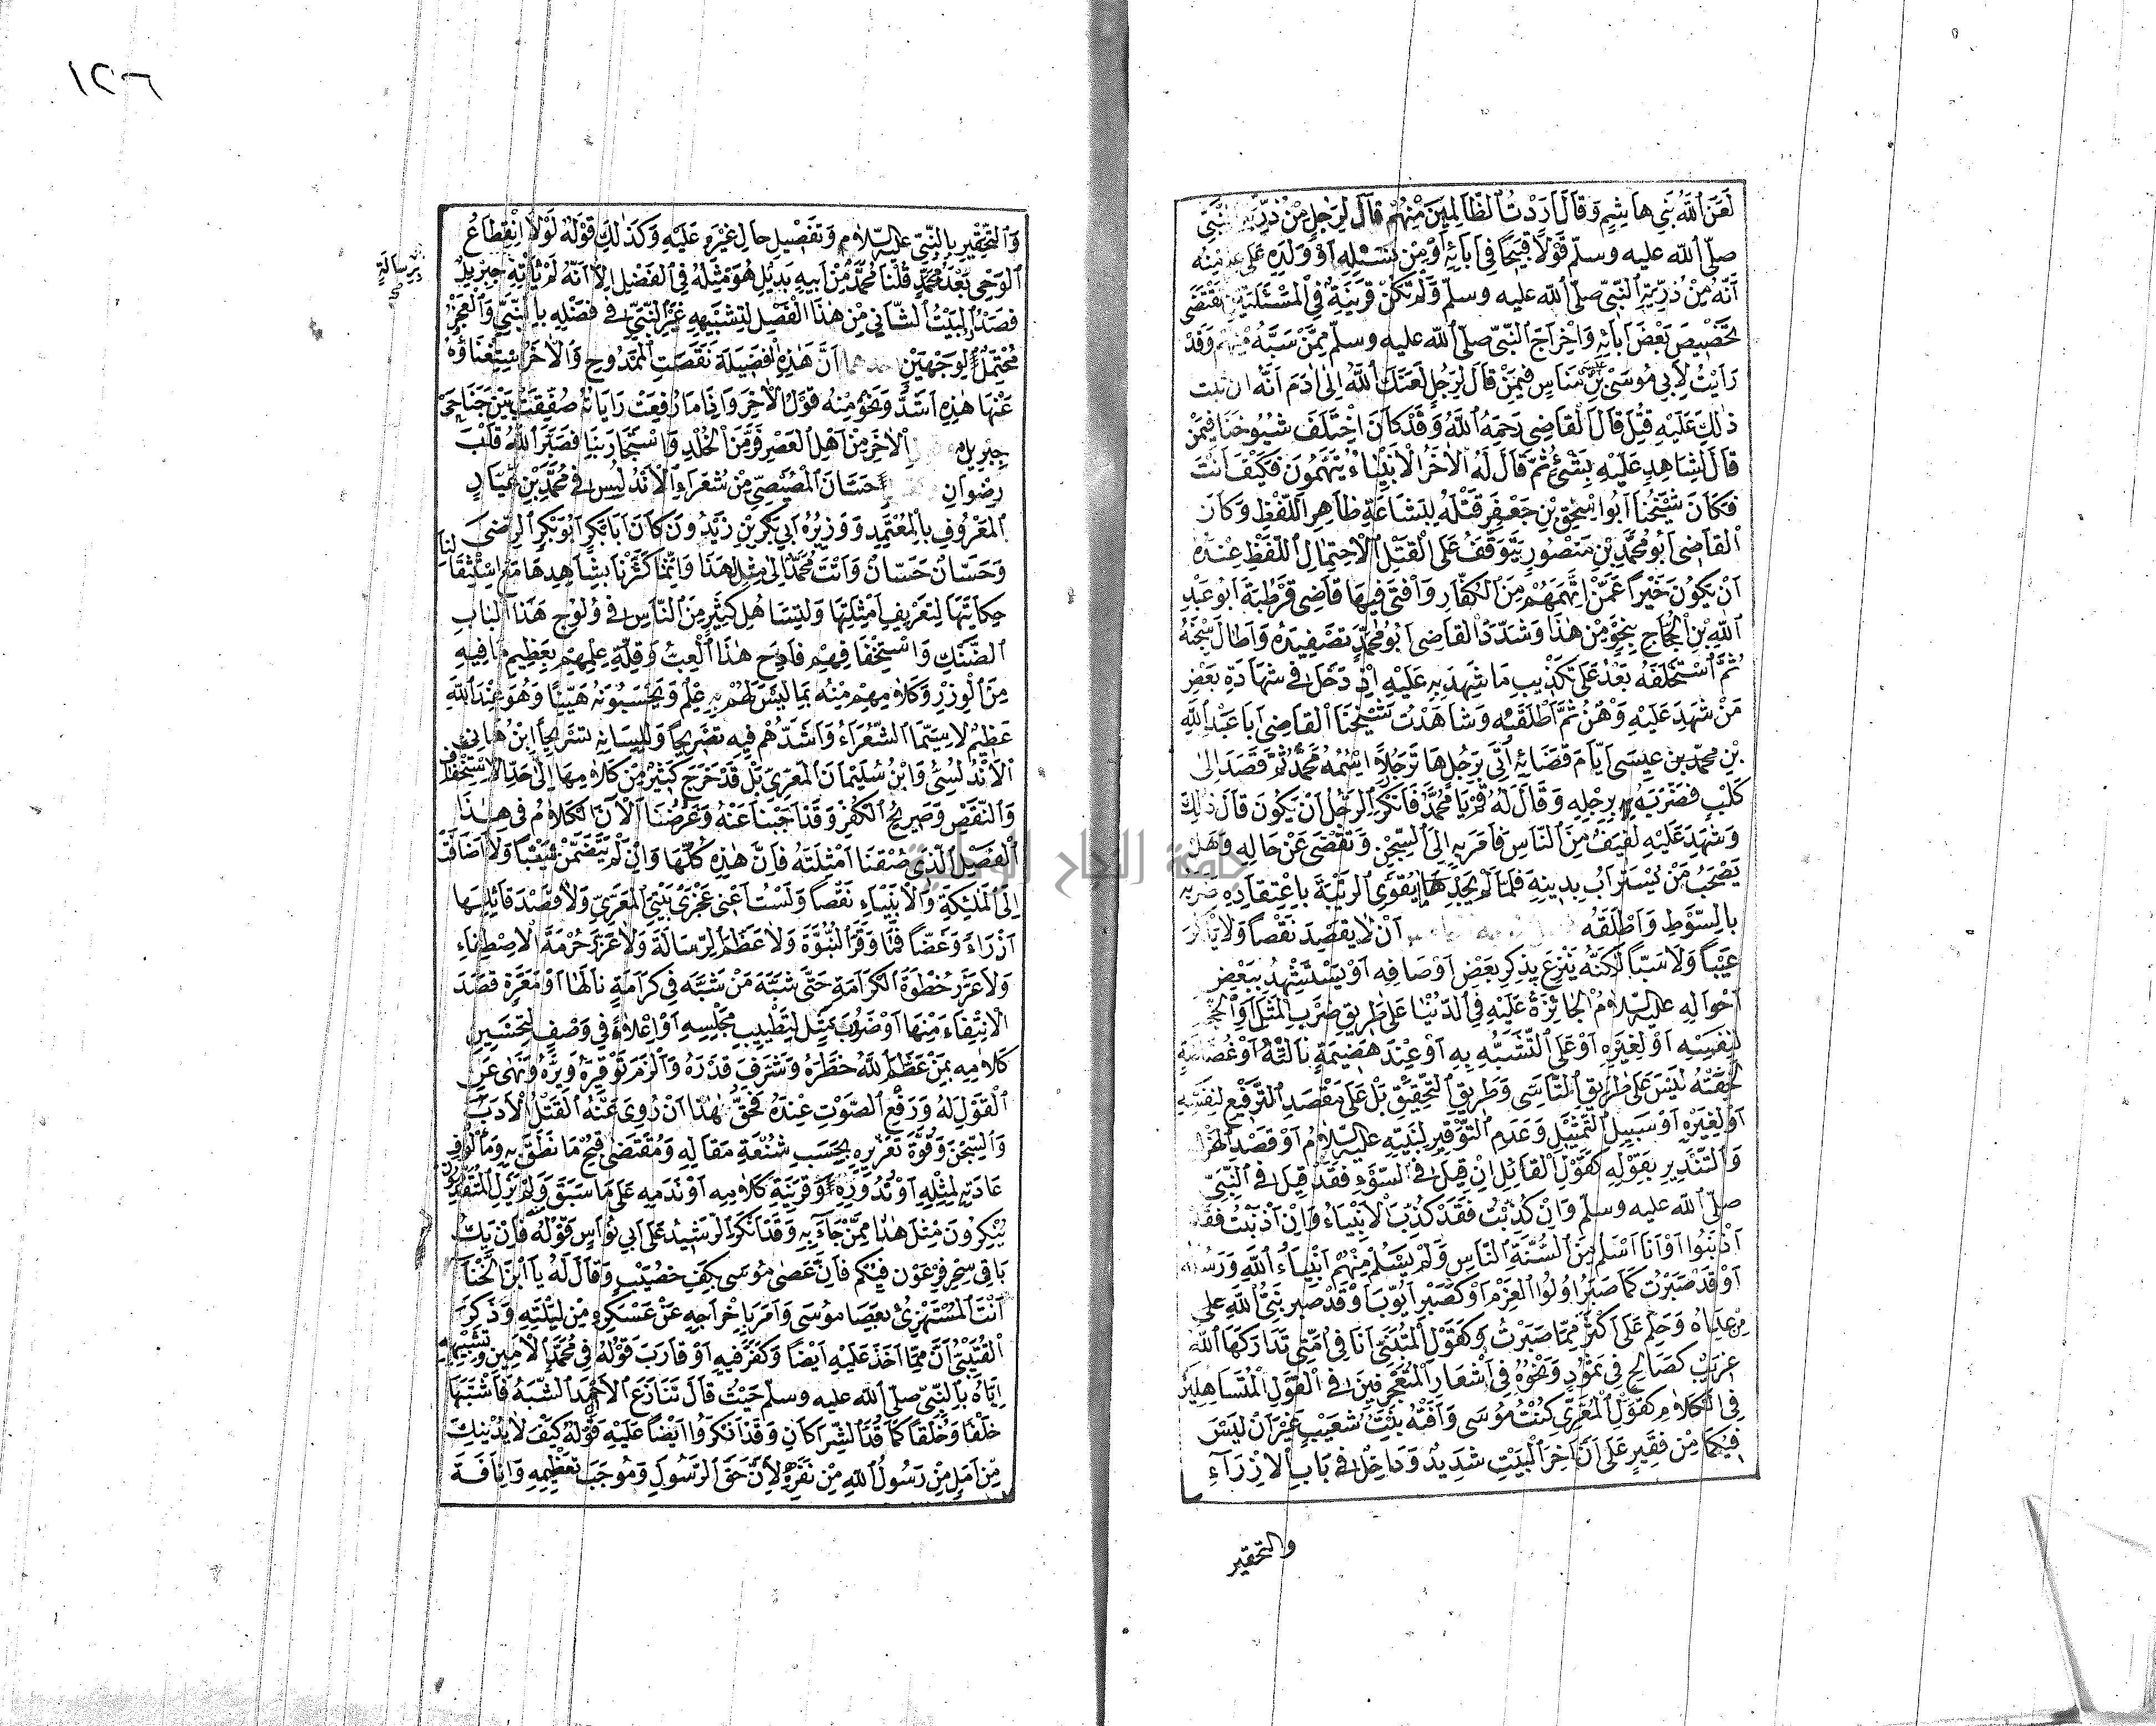 لَعَنَ اللّٰهُ بَنِي هَاشِمٍ وَقَالَ اَرَدْتُ الظَّالِمِينَ مِنْهُمْ قَالَ لِرَجُلٍ مِنْ ذُرِّيَّةِ النَّبِيِّ
صلّى الله عليه وسلّم قَوْلاً قَبِيحًا فِي اٰبَائِهِ اَوْ مِنْ نَسْلِهِ اَوْ وَلَدِهِ عَلَى عِلْمٍ مِنْهُ
اَنَّهُ مِنْ ذُرِّيَّةِ النَّبِيِّ صلّى الله عليه وسلّم وَلَمْ تَكُنْ قَرِينَةٌ فِي الْمَسْئَلَتَيْنِ تَقْتَضِي
تَخْصِيصَ بَعْضِ اٰبَائِهِ وَاِخْرَاجَ النَّبِيِّ صلّى الله عليه وسلّم مِمَّنْ سَبَّهُ مِنْهُمْ وَقَدْ
رَاَيْتُ لِاَبِي مُوسَى بْنِ مَنَاسٍ فِيمَنْ قَالَ لِرَجُلٍ لَعَنَكَ اللّٰهُ اِلَى اٰدَمَ اَنَّهُ اِنْ ثَبَتَ
ذٰلِكَ عَلَيْهِ قُتِلَ قَالَ الْقَاضِي رَحِمَهُ اللّٰهُ وَقَدْ كَانَ اخْتَلَفَ شُيُوخُنَا فِيمَنْ
قَالَ لِشَاهِدٍ عَلَيْهِ بِشَيْءٍ ثُمَّ قَالَ لَهُ الْاٰخَرُ الْاَنْبِيَاءُ يُتَّهَمُونَ فَكَيْفَ اَنْتَ
فَكَانَ شَيْخُنَا اَبُو اِسْحٰقَ بْنِ جَعْفَرٍ قَتْلَهُ لِبَشَاعَةِ ظَاهِرِ اللَّفْظِ وَكَانَ
الْقَاضِي اَبُو مُحَمَّدِ بْنِ مَنْصُورٍ يَتَوَقَّفُ عَلَى الْقَتْلِ لِاحْتِمَالِ اللَّفْظِ عِنْدَهُ
اَنْ يَكُونَ خَيْرًا عَمَّنْ اتَّهَمَهُمْ مِنَ الْكُفَّارِ وَاَفْتَى فِيهَا قَاضِي قُرْطُبَةَ اَبُو عَبْدِ
اللّٰهِ بْنِ الْحَاجِّ بِنَحْوٍ مِنْ هٰذَا وَشَدَّدَ الْقَاضِي اَبُو مُحَمَّدٍ تَصْفِيدَهُ وَاَطَالَ سِجْنَهُ
ثُمَّ اسْتَحْلَفَهُ بَعْدُ عَلَى تَكْذِيبِ مَا شُهِدَ بِهِ عَلَيْهِ اِذْ دَخَلَ فِي شَهَادَةِ بَعْضِ
مَنْ شَهِدَ عَلَيْهِ وَهْنٌ ثُمَّ اَطْلَقَهُ وَشَاهَدْتُ شَيْخَنَا الْقَاضِي اَبَا عَبْدِ اللّٰهِ
بْنِ محمّد بن عِيسَى اَيَّامَ قَضَائِهِ اُتِيَ بِرَجُلٍ هَاتَرَ رَجُلاً اسْمُهُ مُحَمَّدٌ ثُمَّ قَصَدَ اِلَى
كَلْبٍ فَضَرَبَهُ بِرِجْلِهِ وَقَالَ لَهُ قُمْ يَا مُحَمَّدُ فَاَنْكَرَ الرَّجُلُ اَنْ يَكُونَ قَالَ ذٰلِكَ
وَشَهِدَ عَلَيْهِ لَفِيفٌ مِنَ النَّاسِ فَاَمَرَ بِهِ اِلَى السِّجْنِ وَتَقَصَّى عَنْ حَالِهِ وَهَلْ
يَصْحَبُ مَنْ يُسْتَرَابُ بِدِينِهِ فَلَمَّا لَمْ يَجِدْ مَا يُقَوِّي الرِّيبَةَ بِاعْتِقَادِهِ ضَرَبَهُ
بِالسَّوْطِ وَاَطْلَقَهُ اَنْ لَا يَقْصِدَ نَقْصًا وَلَا يَذْكُرَ
عَيْبًا وَلَا سَبًّا لٰكِنَّهُ يَنْزِعُ بِذِكْرِ بَعْضِ اَوْصَافِهِ اَوْ يَسْتَشْهِدُ بِبَعْضِ
اَحْوَالِهِ عليه السّلام الْجَائِزَةِ عَلَيْهِ فِي الدُّنْيَا عَلَى طَرِيقِ ضَرْبِ الْمَثَلِ وَالْحُجَّةِ
لِنَفْسِهِ اَوْ لِغَيْرِهِ اَوْ عَلَى التَّشَبُّهِ بِهِ اَوْ عِنْدَ هَضِيمَةٍ نَالَتْهُ اَوْ غَضَاضَةٍ
لَحِقَتْهُ لَيْسَ عَلَى طَرِيقِ التَّاَسِّي وَطَرِيقِ التَّحْقِيقِ بَلْ عَلَى مَقْصَدِ التَّرْفِيعِ لِنَفْسِهِ
اَوْ لِغَيْرِهِ اَوْ سَبِيلِ التَّمْثِيلِ وَعَدَمِ التَّوْقِيرِ لِنَبِيِّهِ عليه السّلام اَوْ قَصْدِ الْهَزْلِ
وَالتَّنْدِيرِ بِقَوْلِهِ كَقَوْلِ الْقَائِلِ اِنْ قِيلَ فِيَّ السُّوءُ فَقَدْ قِيلَ فِي النَّبِيِّ
صلّى الله عليه وسلّم وَاِنْ كُذِّبْتُ فَقَدْ كُذِّبَ الْاَنْبِيَاءُ وَاِنْ اَذْنَبْتُ فَقَدْ
اَذْنَبُوا اَوْ اَنَا اَسْلَمُ مِنْ اَلْسِنَةِ النَّاسِ وَلَمْ يَسْلَمْ مِنْهُمْ اَنْبِيَاءُ اللّٰهِ وَرُسُلُهُ
اَوْ قَدْ صَبَرْتُ كَمَا صَبَرَ اُولُوا الْعَزْمِ اَوْ كَصَبْرِ اَيُّوبَ اَوْ قَدْ صَبَرَ نَبِيُّ اللّٰهِ عَلَى
عِدَاهُ وَحَلُمَ عَلَى اَكْثَرَ مِمَّا صَبَرْتُ وَكَقَوْلِ الْمُتَنَبِّي اَنَا فِي اُمَّةٍ تَدَارَكَهَا اللّٰهُ
غَرِيبٌ كَصَالِحٍ فِي ثَمُودَ وَنَحْوِهُ فِي اَشْعَارِ الْمُتَعَجْرِفِينَ فِي الْقَوْلِ الْمُتَسَاهِلِينَ
فِي الْكَلَامِ كَقَوْلِ الْمَعَرِّي كُنْتَ مُوسَى وَافَتْهُ بِنْتُ شُعَيْبٍ غَيْرَ اَنْ لَيْسَ
فِيكُمَا مِنْ فَقِيرٍ عَلَى اَنَّ اٰخِرَ الْبَيْتِ شَدِيدٌ وَدَاخِلٌ فِي بَابِ الْاِزْرَاءِ
والتحقير
١٢٦
وَالتَّحْقِيرِ بِالنَّبِيِّ عليه السّلام وَتَفْضِيلِ حَالِ غَيْرِهِ عَلَيْهِ وَكَذٰلِكَ قَوْلُهُ لَوْلَا انْقِطَاعُ
الْوَحْيِ بَعْدَ مُحَمَّدٍ قُلْنَا مُحَمَّدٌ مِنْ اَبِيهِ بَدِيلُ هُوَ مِثْلُهُ فِي الْفَضْلِ اِلَّا اَنَّهُ لَمْ يَاْتِهِ جِبْرِيلُ
بِرِسَالَةٍ
صح
فَصَدْرُ الْبَيْتِ الثَّانِي مِنْ هٰذَا الْفَصْلِ لِتَشْبِيهِهِ غَيْرَ النَّبِيِّ فِي فَضْلِهِ بِالنَّبِيِّ وَالْعَجْزُ
مُحْتَمِلٌ لِوَجْهَيْنِ اَنَّ هٰذِهِ الْفَضِيلَةَ نَقَصَتِ الْمَمْدُوحَ وَالْاٰخَرُ اسْتِغْنَاؤُهُ
عَنْهَا هٰذِهِ اَشَدُّ وَنَحْوٌ مِنْهُ قَوْلُ الْاٰخَرِ وَاِذَا مَا رُفِعَتْ رَايَاتُهُ صُفِّقَتْ بَيْنَ جَنَاحَيْ
جِبْرِيلَ الْاٰخَرِ مِنْ اَهْلِ الْعَصْرِ فَرَّ مِنَ الْخُلْدِ وَاسْتَجَارَ بِنَا فَصَبَّرَ اللّٰهُ قَلْبَ
رِضْوَانِ حَسَّانَ الْمِصِّيصِيِّ مِنْ شُعَرَاءِ الْاَنْدُلُسِ فِي مُحَمَّدِ بْنِ عَبَّادٍ
الْمَعْرُوفِ بِالْمُعْتَمِدِ وَوَزِيرِهُ اَبِي بَكْرِ بْنِ زَيْدُونَ كَاَنَّ اَبَا بَكْرٍ اَبُو بَكْرٍ الرِّضَى
وَحَسَّانَ حَسَّانٌ وَاَنْتَ مُحَمَّدٌ اِلَى مِثْلِ هٰذَا وَاِنَّمَا كَثَّرْنَا بِشَاهِدِهَا مَعَ اسْتِثْقَالِنَا
حِكَايَتَهَا لِتَعْرِيفِ اَمْثِلَتِهَا وَلِتَسَاهُلِ كَثِيرٍ مِنَ النَّاسِ فِي وُلُوجِ هٰذَا الْبَابِ
الضَّنْكِ وَاسْتِخْفَافِهِمْ فَادِحَ هٰذَا الْعِبْءِ وَقِلَّةِ عِلْمِهِمْ بِعَظِيمِ مَا فِيهِ
مِنَ الْوِزْرِ وَكَلَامِهِمْ مِنْهُ بِمَا لَيْسَ لَهُمْ بِهِ عِلْمٌ وَيَحْسَبُونَهُ هَيِّنًا وَهُوَ عِنْدَ اللّٰهِ
عَظِيمٌ لَا سِيَّمَا الشُّعَرَاءُ وَاَشَدُّهُمْ فِيهِ تَصْرِيحًا وَلِلِسَانِهِ تَسْرِيحًا ابْنُ هَانِي
الْاَنْدُلُسِيُّ وَابْنُ سُلَيْمَانَ الْمَعَرِّيُّ بَلْ قَدْ خَرَجَ كَثِيرٌ مِنْ كَلَامِهِمَا اِلَى حَدِّ الْاِسْتِخْفَافِ
وَالنَّقْصِ وَصَرِيحِ الْكُفْرِ وَقَدْ اَجَبْنَا عَنْهُ وَغَرَضُنَا الْاٰنَ الْكَلَامُ فِي هٰذَا
الْفَصْلِ الَّذِي سُقْنَا اَمْثِلَتَهُ فَاِنَّ هٰذِهِ كُلَّهَا وَاِنْ لَمْ يَتَضَمَّنْ سَبًّا وَلَا اَضَافَتْ
اِلَى الْمَلٰئِكَةِ وَالْاَنْبِيَاءِ نَقْصًا وَلَسْتُ اَعْنِي عَجْزَيْ بَيْتَيِ الْمَعَرِّيِّ وَلَا قَصَدَ قَائِلُهَا
اِزْرَاءً وَغَضًّا فَمَا وَقَّرَ النُّبُوَّةَ وَلَا عَظَّمَ الرِّسَالَةَ وَلَا عَزَّزَ حُرْمَةَ الْاِصْطِفَاءِ
وَلَا عَزَّزَ حُظْوَةَ الْكَرَامَةِ حَتَّى شَبَّهَ مَنْ شَبَّهَ فِي كَرَامَةٍ نَالَهَا اَوْ مَعَرَّةٍ قَصَدَ
الْاِنْتِفَاءَ مِنْهَا اَوْ ضَرْبِ مَثَلٍ لِتَطْيِيبِ مَجْلِسِهِ اَوْ اِغْلَاءٍ فِي وَصْفٍ لِتَحْسِينِ
كَلَامِهِ بِمَنْ عَظَّمَ اللّٰهُ خَطَرَهُ وَشَرَّفَ قَدْرَهُ وَاَلْزَمَ تَوْقِيرَهُ وَبِرَّهُ وَنَهَى عَنْ
الْقَوْلِ لَهُ وَرَفْعِ الصَّوْتِ عِنْدَهُ فَحَقُّ هٰذَا اِنْ رُوِيَ عَنْهُ الْقَتْلُ الْاَدَبُ
وَالسِّجْنُ وَقُوَّةُ تَعْزِيرِهِ بِحَسَبِ شُنْعَةِ مَقَالِهِ وَمُقْتَضَى قُبْحِ مَا نَطَقَ بِهِ وَمَاْلُوفِ
عَادَتِهِ لِمِثْلِهِ اَوْ نُدُورِهِ اَوْ قَرِينَةِ كَلَامِهِ اَوْ نَدَمِهِ عَلَى مَا سَبَقَ وَلَمْ يَزَلِ الْمُتَقَدِّمُونَ
يُنْكِرُونَ مِثْلَ هٰذَا مِمَّنْ جَاءَ بِهِ وَقَدْ اَنْكَرَ الرَّشِيدُ عَلَى اَبِي نُوَاسٍ قَوْلَهُ فَاِنْ يَكُ
بَاقِي سِحْرِ فِرْعَوْنَ فِيكُمْ فَاِنَّ عَصَى مُوسَى بِكَفِّ خَصِيبِ وَقَالَ لَهُ يَا ابْنَ اللَّخْنَاءِ
اَنْتَ الْمُسْتَهْزِئُ بِعَصَا مُوسَى وَاَمَرَ بِاِخْرَاجِهِ عَنْ عَسْكَرِهِ مِنْ لَيْلَتِهِ وَذَكَرَ
الْقُتَيْبِيُّ اَنَّ مِمَّا اُخِذَ عَلَيْهِ اَيْضًا وَكُفِّرَ فِيهِ اَوْ قَارَبَ قَوْلُهُ فِي مُحَمَّدٍ الْاَمِينِ وَتَشْبِيهِهِ
اِيَّاهُ بِالنَّبِيِّ صلّى الله عليه وسلّم حَيْثُ قَالَ تَنَازَعَ الْاَحْمَدَانِ الشِّبْهَ فَاشْتَبَهَا
خَلْقًا وَخُلُقًا كَمَا قُدَّ الشِّرَاكَانِ وَقَدْ اَنْكَرُوا اَيْضًا عَلَيْهِ قَوْلَهُ كَيْفَ لَا يُدْنِيكَ
مِنْ اَمَلٍ مِنْ رَسُولُ اللّٰهِ مِنْ نَفَرِهْ لِاَنَّ حَقَّ الرَّسُولِ وَمُوجَبَ تَعْظِيمِهِ وَاِنَافَةَ
جامعة النجاح الوطنية